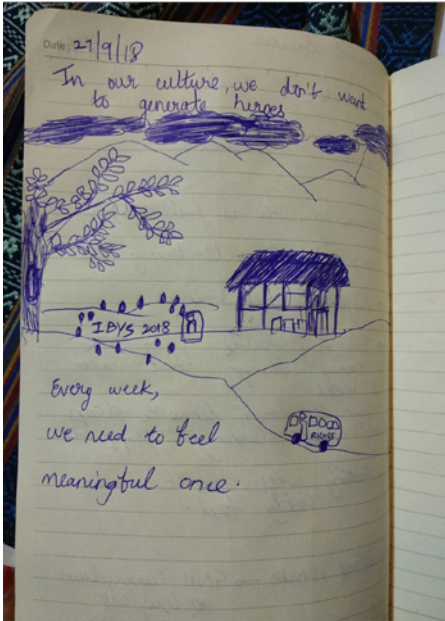 Date: 27/9/18
In our culture, we don't want
to generate heroes
IBYS 2018
Every week,
we need to feel
meaningful once.